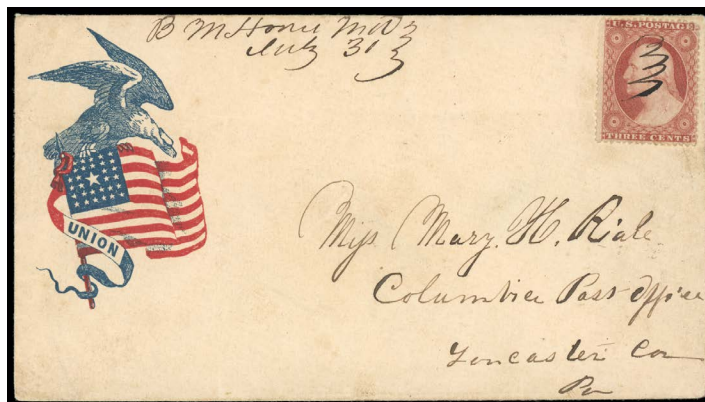 July 31
U.S. POSTAGE
THREE CENTS
UNION
Miss Mary. H. Riale
Columbia Post Office
Lancaster Co
Pa